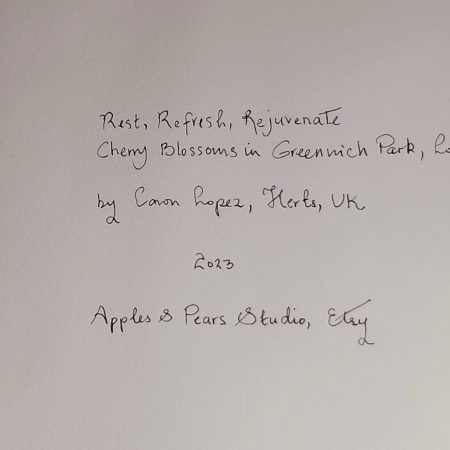 Rest, Refresh, Rejuvenate
Cherry Blossoms in Greenwich Park, Lo
by Caron Lopez, Herts, UK
2023
Apples & Pears Studio, Etsy